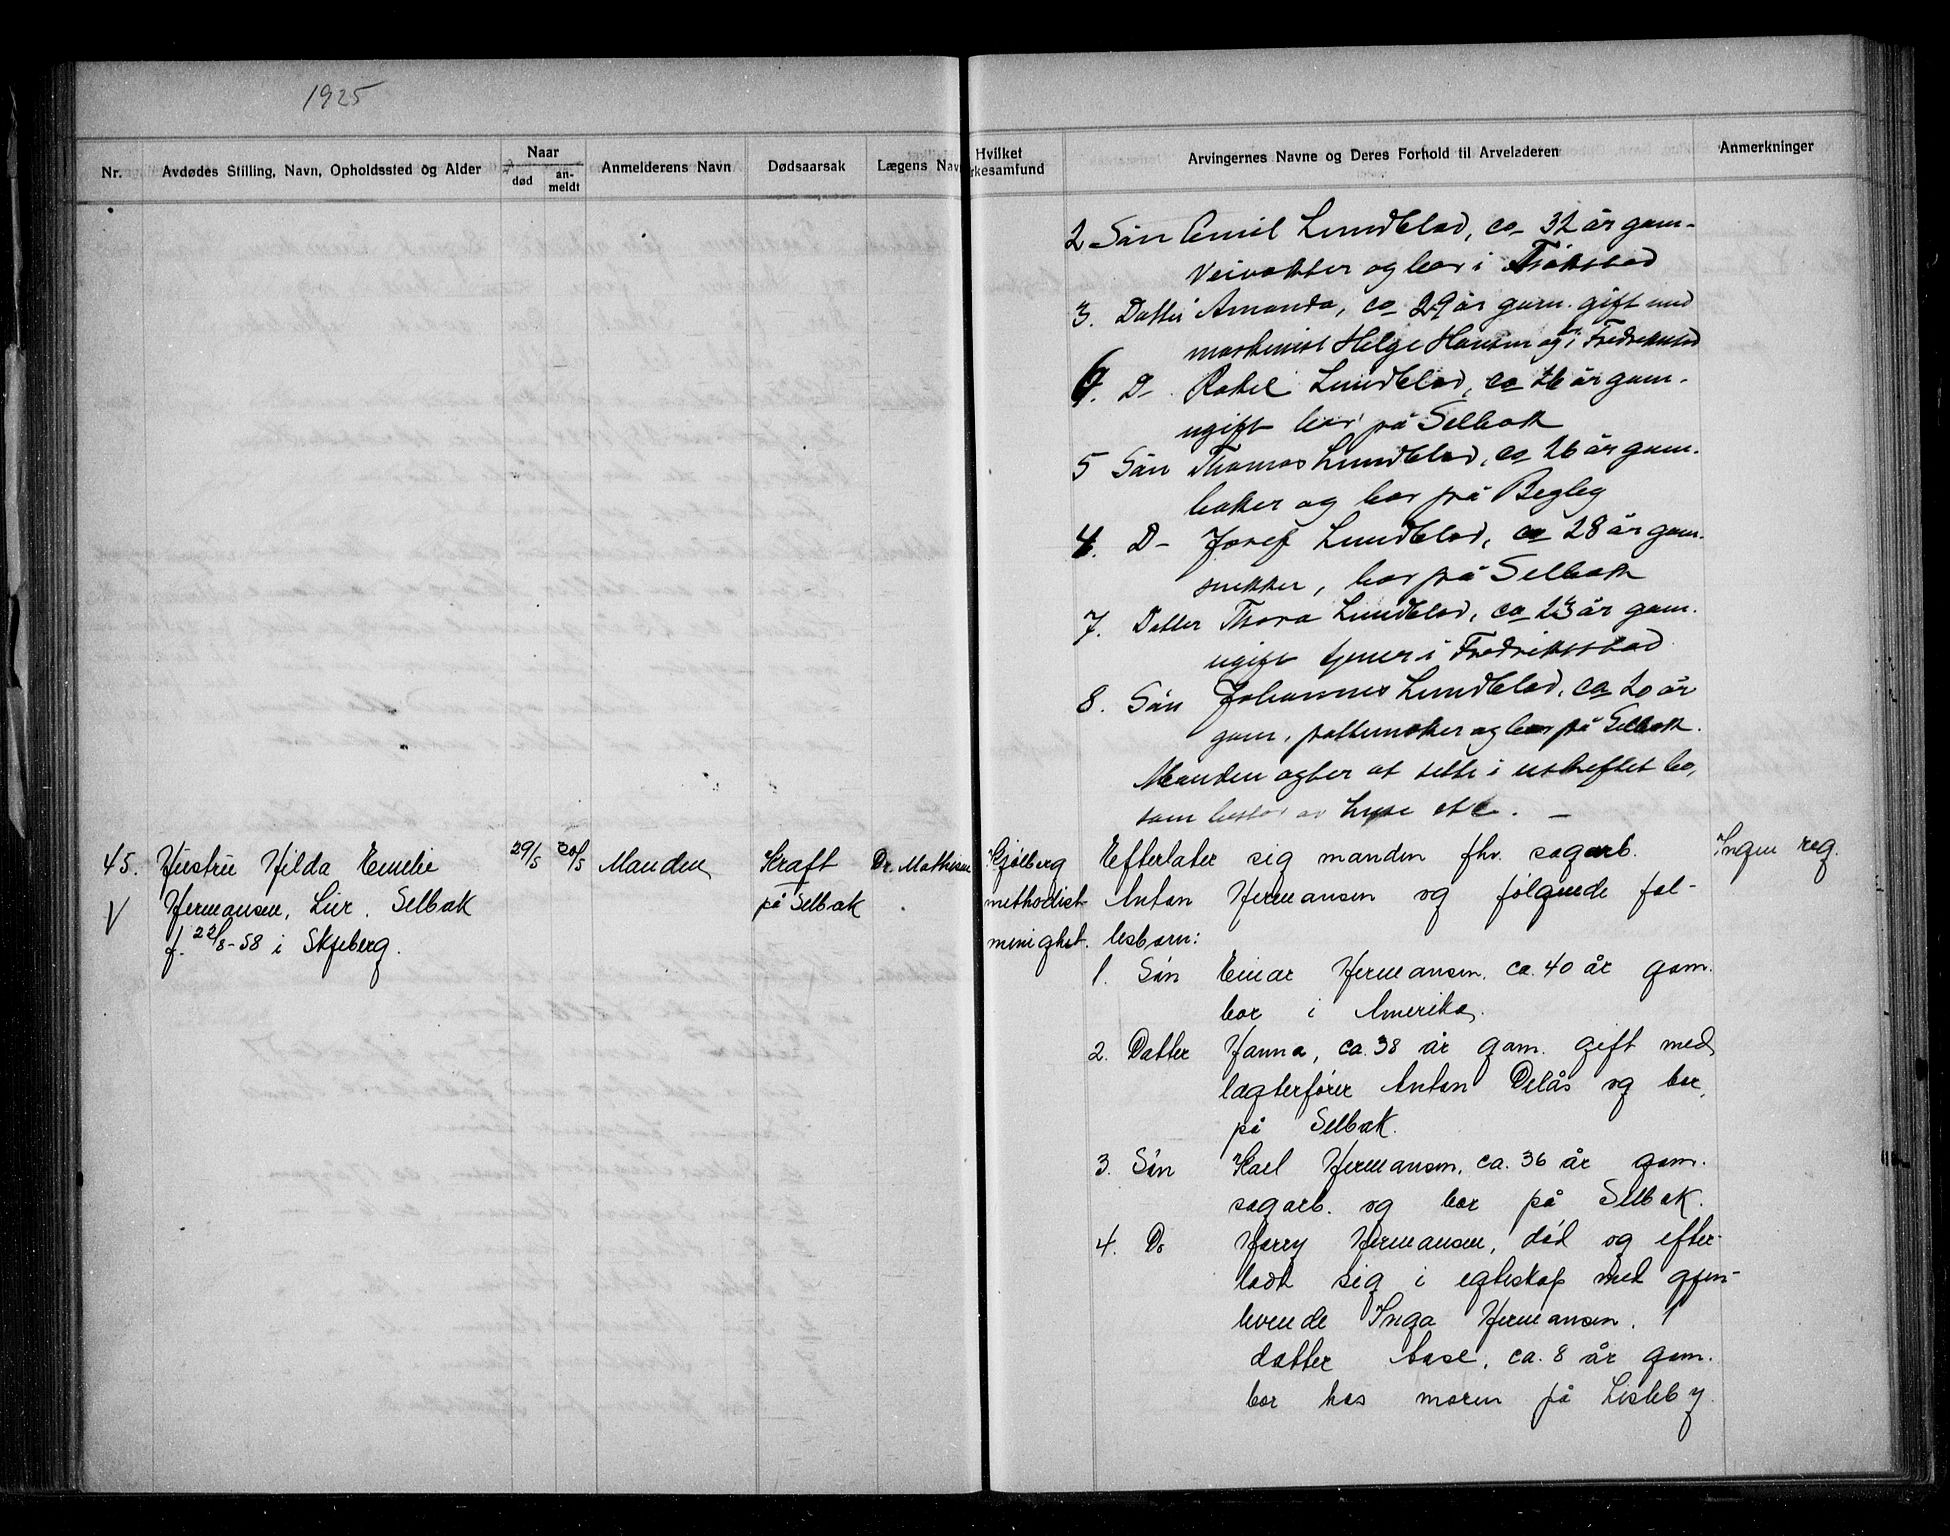 1925
Nr.
Avdødes Stilling, Navn, Opholdssted og Alder
Naar
død
an-
meldt
Anmelderens Navn
Dødsaarsak
Lægens Navn
Hvilket
rkesamfund
Arvingernes Navne og Deres Forhold til Arveladeren
Anmerkninger
2 Søn Emil Lundblad, ca 32 år gam.
veivokter og bor i Trøkstad
3. Datter Amanda, ca 29 år gam. gift med
maskinist Helge Hansen og i Fredrikstad
6. D- Rakel Lundblad, ca 26 år gam.
ugift bor på Selbak
5 Søn Thomas Lundblad, ca 26 år gam.
baker og bor på Begby
4. D- Josef Lundblad, ca 28 år gam.
snekker, bor på Selbak
7. Datter Thora Lundblad, ca 23 år gam.
ugift tjener i Fredriksstad
8. Søn Johannes Lundblad, ca 20 år
gam, pottemaker og bor på Selbak.
Manden agter at sitte i uskiftet bo,
som består av hus etc. —
45. Hustru Hilda Emelie
Hermansen, Lier. Selbak
f. 22/8-58 i Skjeberg.
V
29/5
30/5
Manden
Kraft
på Selbak
Dr. Mathisen
Kjølberg
methodist
menighet.
Efterlater sig manden fhv. sagarb.
Anton Hermansen og følgende fel-
lesbarn:
1. Søn Einar Hermansen, ca. 40 år gam.
bor i Amerika.
2. Datter Hanna, ca. 38 år gam. gift med
lægterfører Anton Delås og bor
på Selbak.
3. Søn Karl Hermansen, ca. 36 år gam.
sagarb. og bor på Selbak.
4. Do Harry Hermansen, død og efter-
lodt sig i egteskap med gjen-
levende Inga Hermansen. 1
datter Aase, ca. 8 år gam.
bor hos moren på Lisleby
Ingen reg.